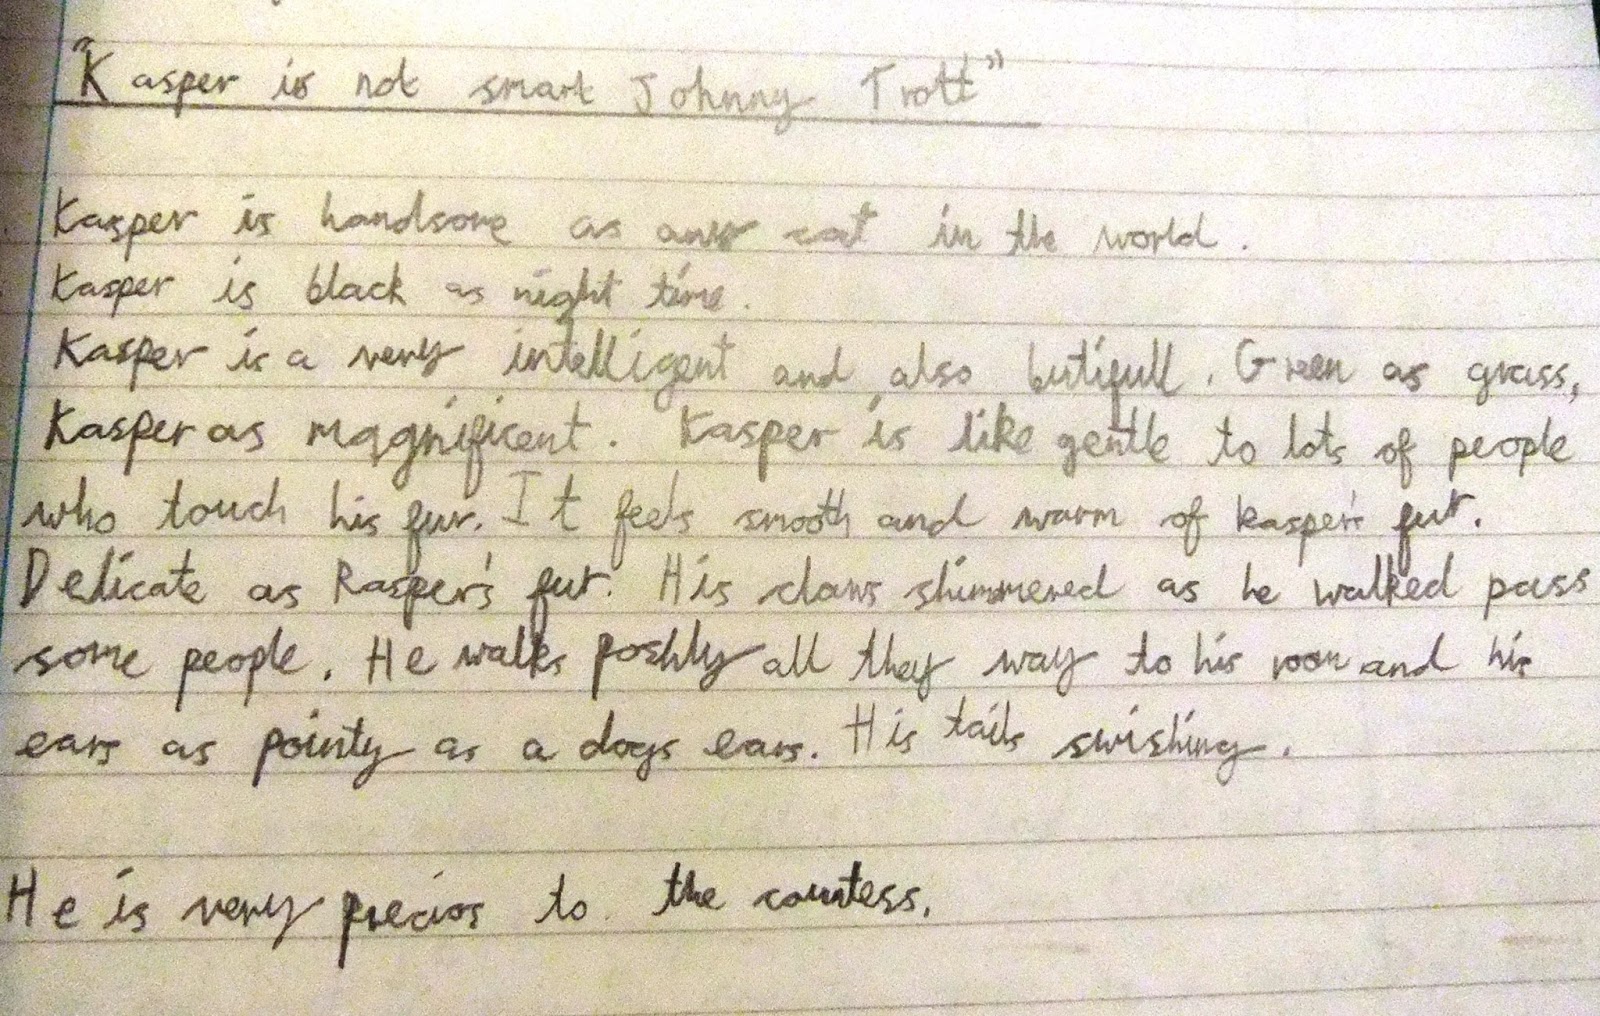 "Kasper is not smart Johnny Trott"
Kasper is handsome as any cat in the world.
Kasper is black as night time.
Kasper is a very intelligent and also butifull. Green as grass,
Kasper as magnificent. Kasper is like gentle to lots of people
who touch his fur. It feels smooth and warm of Kasper's fur.
Delicate as Kasper's fur. His claws shimmered as he walked pass
some people. He walks poshly all they way to his room and his
ears as pointy as a dogs ears. His tails swishing.
He is very precios to the countess.